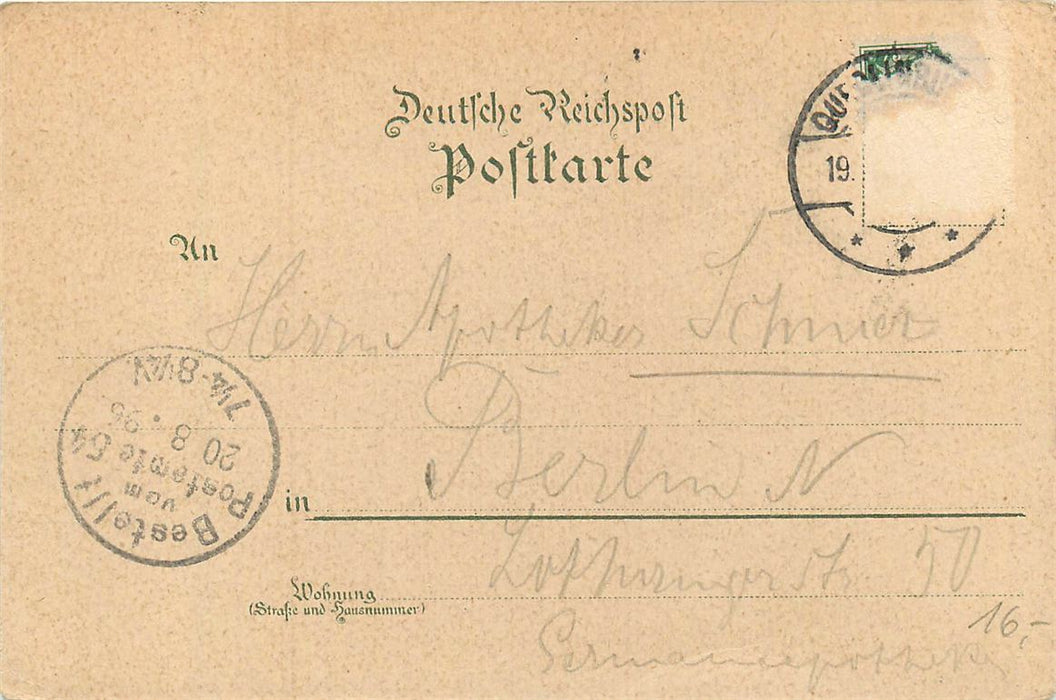 Deutsche Reichspost
Postkarte
19.
An
Herrn Apotheker
Berlin N
in
Lothringer Str. 50
Wohnung
(Straße und Hausnummer)
Germaniaapotheke
16,-
Bestellt
vom
Postamte 54
20 8
7¼-8½V